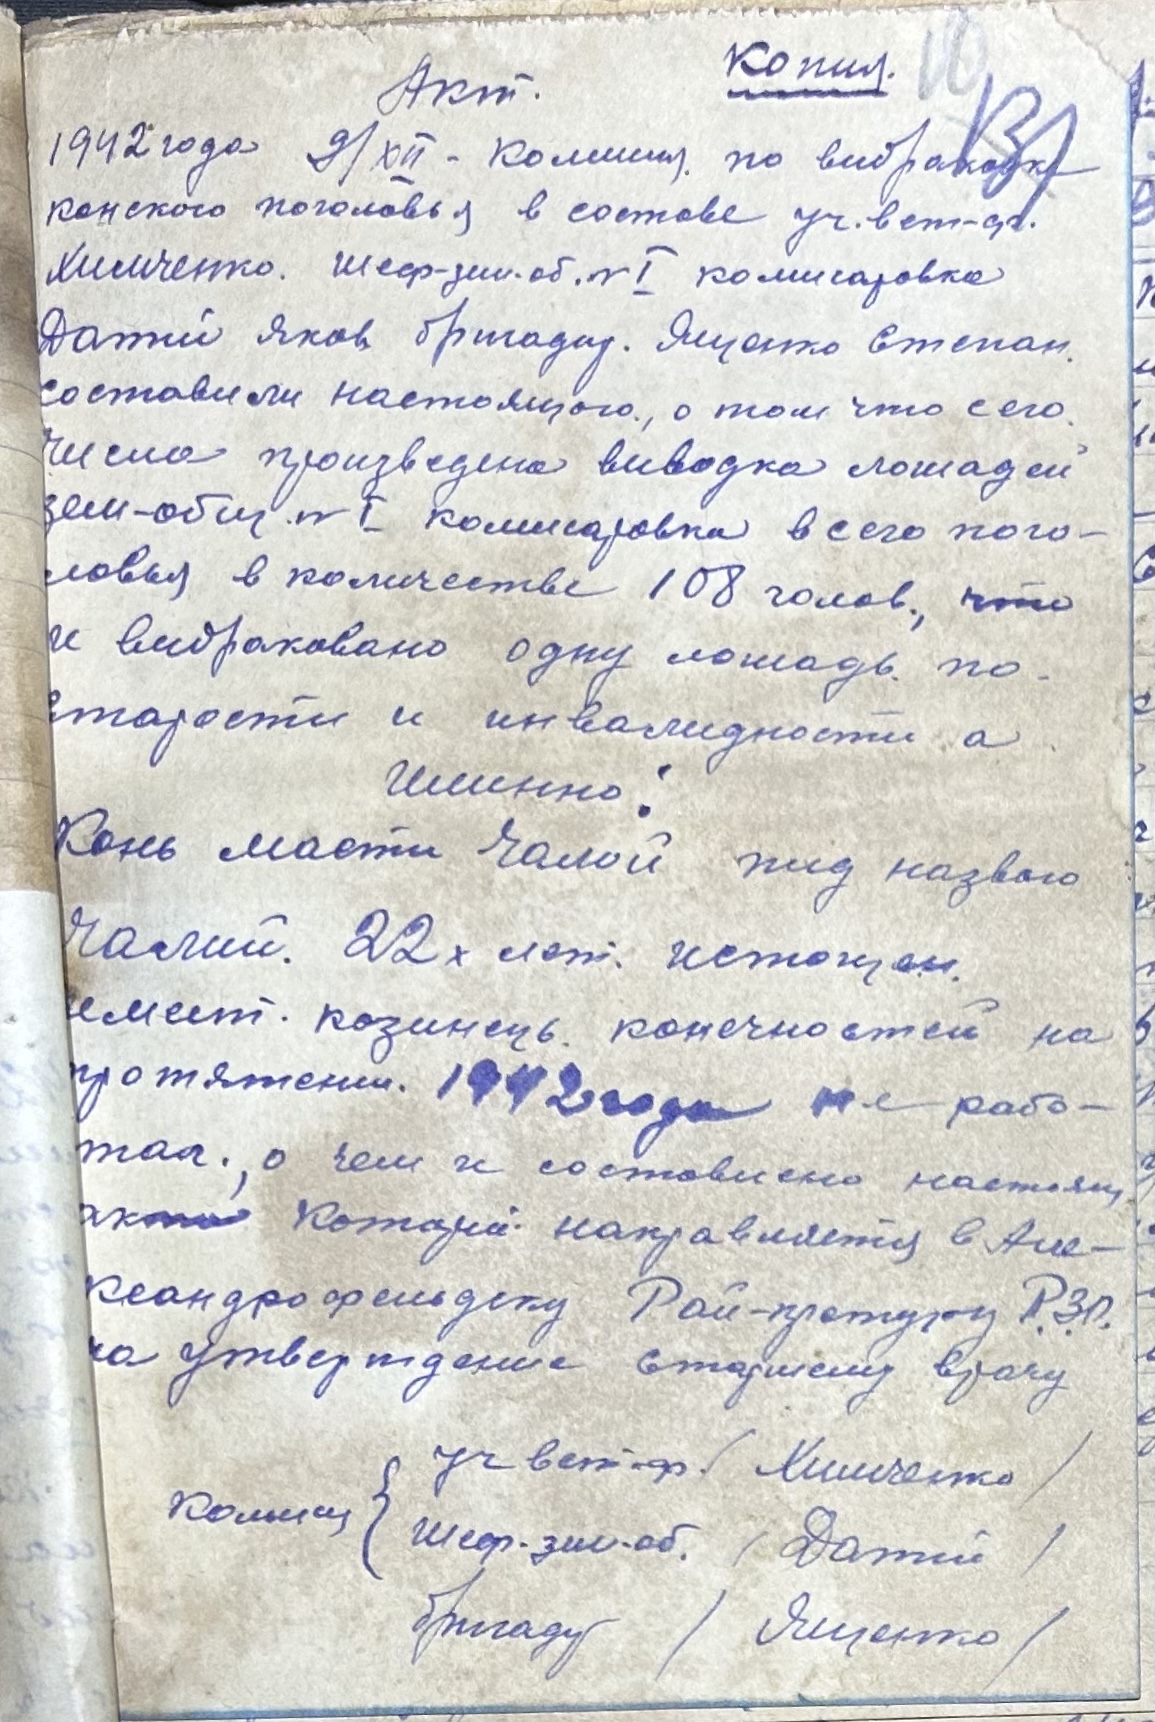 Копия. 10
Акт.
1942 года 9/XII - Комисия по вибраковке
конского поголовья в состове уч. вет-ф.
Химченко. Шеф-зим-об. № I комисаровка
Датий Яков бригадир. Ященко Степан.
составили настоящого, о том что сего
числа произведена виводка лошадей
зем-общ. № I комисаровка всего пого-
ловья в количестве 108 голов., что
и вибраковано одну лошадь по
старости и инвалидности а
именно:
Конь масти Чалой пид назвою
Чалий. 22х лет. истощен.
имеет. козинець конечностей на
протяжении. 1942 года не рабо-
тал., о чем и составлено настоящ
акт Который направляется в Але-
ксандрофельдску Рай-
на утверждение старшему врачу
Комисия { уч вет-ф. / Химченко /
Шеф-зим-об. / Датий /
бригадир / Ященко /